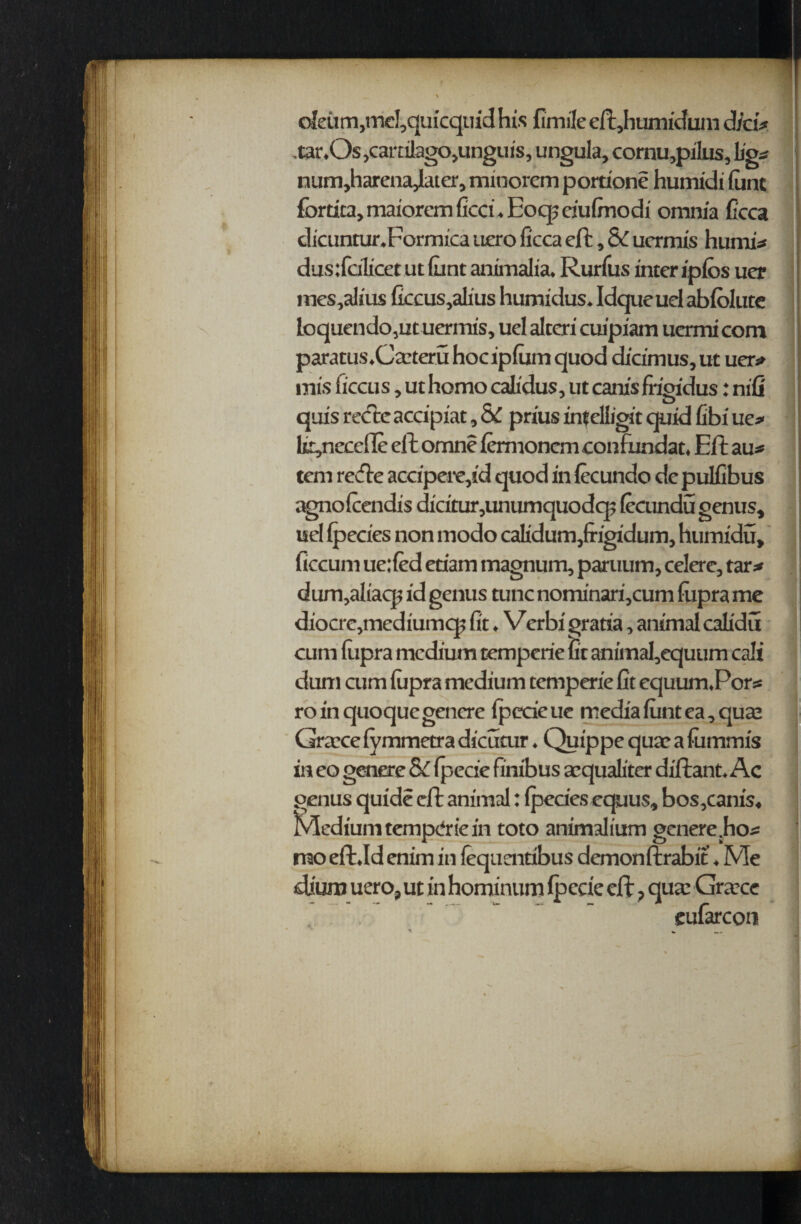 oleum,mel,quicquid his ſimile eſt,humidum dici⸗
tur.Os,cartilago,unguis, ungula, cornu,pilus, lig⸗
num,harena,later, minorem portionē humidi ſunt
ſortita, maiorem ſicci. Eoqꝫ eiuſmodi omnia ſicca
dicuntur.Formica uero ſicca eſt, & uermis humi⸗
dus:ſcilicet ut ſunt animalia. Rurſus inter ipſos uer
mes,alius ſiccus,alius humidus. Idque uel abſolute
loquendo,ut uermis, uel alteri cuipiam uermi com
paratus.Cæterū hoc ipſum quod dicimus, ut uer⸗
mis ſiccus, ut homo calidus, ut canis frigidus : niſi
quis recte accipiat, & prius intelligit quid ſibi ue⸗
lit,neceſſe eſt omnē ſermonem confundat. Eſt au⸗
tem recte accipere,id quod in ſecundo de pulſibus
agnoſcendis dicitur,unumquodqꝫ ſecundū genus,
uel ſpecies non modo calidum,frigidum, humidū,
ſiccum ue:ſed etiam magnum, paruum, celere, tar⸗
dum,aliaqꝫ id genus tunc nominari,cum ſupra me
diocre,mediumqꝫ ſit. Verbi gratia, animal calidū
cum ſupra medium temperie ſit animal,equum cali
dum cum ſupra medium temperie ſit equum.Por⸗
ro in quoque genere ſpecie ue media ſunt ea, quæ
Græce ſymmetra dicūtur. Quippe quæ a ſummis
in eo genere & ſpecie finibus æqualiter diſtant. Ac
genus quidē eſt animal : ſpecies equus, bos,canis.
Medium temperie in toto animalium genere,ho⸗
mo eſt.Id enim in ſequentibus demonſtrabit. Me
dium uero, ut in hominum ſpecie eſt, quæ Græce
euſarcon